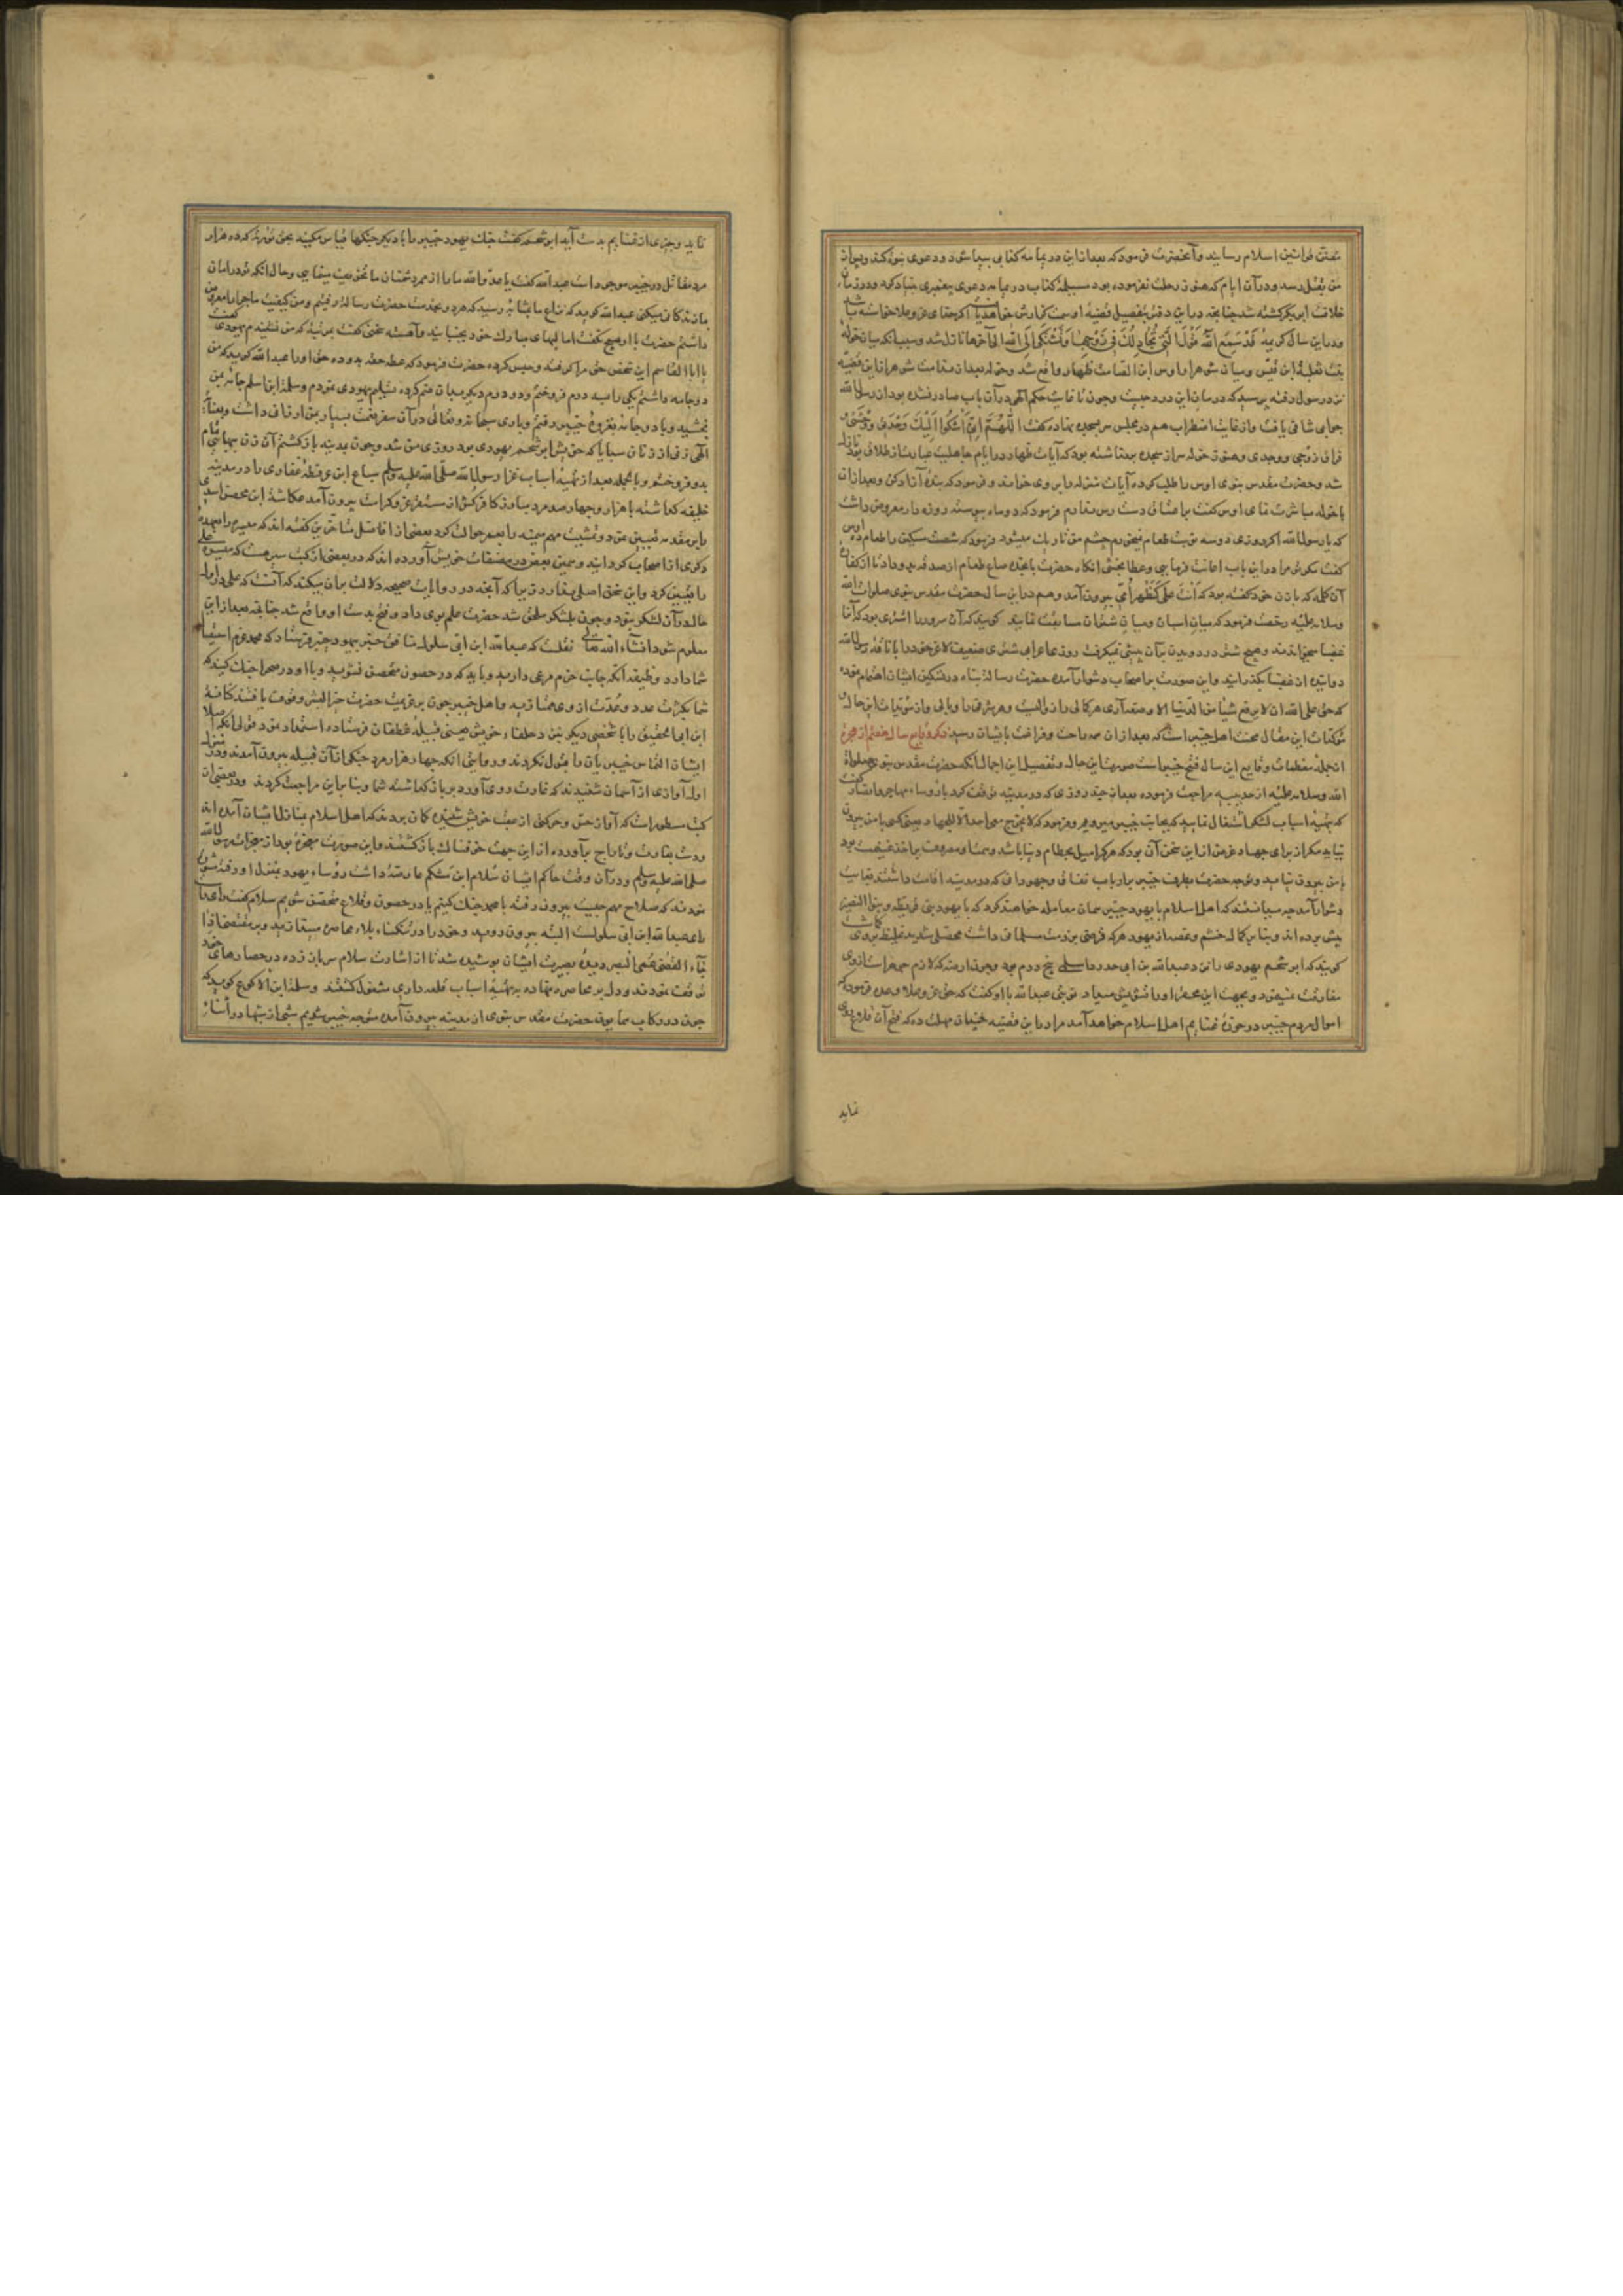 سنن قوانین اسلام رسانید و آنحضرت فرمود که بعد ازین در یمامه کذابی پیدا شود و دعوی نبوت کند و بعد از
من بقتل رسد و در آن ایام که هنوز رحلت نفرموده بود مسیلمه کذاب در یمامه دعوی پیغمبری بنیاد کرد و در زمان
خلافت ابی بکر کشته شد چنانچه در این دفتر بتفصیل قضیه او سمت گزارش خواهد یافت اگر خدای عز و علا خواسته باشد
و در این سال کریمه قَدْ سَمِعَ اللّٰهُ قَوْلَ الَّتِی تُجَادِلُکَ فِی زَوْجِهَا وَتَشْتَکِی اِلَی اللّٰهِ الی آخرها نازل شد و سبب آنکه میان خوله
بنت ثعلبه ابن قیس و میان شوهر او اوس ابن الصامت ظهار واقع شد و خوله بعد از ندامت شوهر از این قضیه
نزد رسول رفته پرسید که درمان این درد چیست و چون تا غایت حکم الهی در آن باب صادر نشده بود از رسول الله
جوابی شافی نیافت و از غایت اضطراب هم در مجلس سر بسجده نهاده گفت اللّٰهُمَّ اِنِّی اَشْکُوا اِلَیْکَ وَحْدَتِی وَوَحْشَتِی
فراق زوجی و وجدی و هنوز خوله سر از سجده برنداشته بود که آیات ظهار در ایام جاهلیت عبارت از طلاق بود نازل
شد و حضرت مقدس نبوی اوس را طلب کرده آیات منزله را بر وی خواند و فرمود که بنده آزاد کن و بعد از آن
با خوله مباشرت نمای اوس گفت بر اعتاق دسترس ندارم فرمود که دو ماه پیوسته روزه دار معروض داشت
که یا رسول الله اگر روزی دو سه نوبت طعام نمیخورم چشم من تاریک میشود فرمود که شصت مسکین را طعام ده اوس
گفت مگر مرا در این باب اعانت فرمایی و عطا بخشی انگاه حضرت پانجده صاع طعام از صدقه بدو داد تا از کفاره
آن کلمه که با زن خود گفته بود که انت علی کظهر امی بیرون آمد و هم در این سال حضرت مقدس نبوی صلوات الله
وسلامه علیه رخصت فرمود که میان اسبان و میان شتران مسابقت نمایند گویند که آن سرور را اشتری بود که آنرا
عضبا میخواندند و هیچ شتر در دویدن بر آن پیشی نمیگرفت روزی اعرابی شتری ضعیف لاغر خود را با ناقه رسول الله
دوانیده از عضبا بگذرانید و این صورت بر اصحاب دشوار آمده حضرت رسالت پناه در تسکین ایشان اهتمام نموده
که حق علی الله ان لا یرفع شیأ من الدنیا الا وضعه آری هر کمالی را زوالیست و هر شرفی را وبالی و از مؤیدات این حال
مؤکدات این مقال محنت اهل خیبر است که بعد از آن همه راحت و فراغت بایشان رسید ذکر وقایع سال هفتم از هجرت
از جمله معظمات وقایع این سال فتح خیبر است صورت این حال و تفصیل این اجمال آنکه حضرت مقدس نبوی صلوات
الله وسلامه علیه از حدیبیه مراجعت فرموده بعد از چند روزی که در مدینه توقف کرد با رؤساء مهاجر و انصار گفت
که تهیه اسباب لشکر اشتغال نمایید که بجانب خیبر میرویم و فرمود که لا یخرج معی احد الا للجهاد یعنی کسی با من بیرون
نیاید مگر از برای جهاد و غرض از این سخن آن بود که هر کرا میل بحطام دنیا باشد و همت او مصروف بر اخذ غنیمت بود
با من بیرون نیاید و توجه حضرت بطرف خیبر بر ارباب نفاق و جهودانی که در مدینه اقامت داشتند بغایت
دشوار آمد چه میدانستند که اهل اسلام با یهود خیبر همان معامله خواهند کرد که با یهود بنی قریظه و بنی النضیر
پیش برده اند و بنابر کمال خشم و غضب از یهود هر که قرضی بر ذمت مسلمانی داشت محصلی شدید غلیظ بر وی گماشت
گویند که ابو شحم یهودی را نزد عبدالله بن ابی حدرد اسلمی پنج درم بود و چون ارضه که لازم همراه او از وی
مفارقت نمینمود و بجهت این محقر او را تشویش میداد نوبتی عبدالله با او گفت که حق عز و علا وعده فرموده که
اموال مردم خیبر در حوزه غنایم اهل اسلام خواهد آمد مرا در این قضیه چندان مهلت ده که فتح آن قلاع روی
نماید
نماید و چیزی از غنایم بدست آید ابو شحم گفت جنگ یهود خیبر را با دیگر جنگها قیاس مکنید بحق توریة که ده هزار
مرد مقاتل در خیبر موجود است عبدالله گفت یا عدو الله ما را از مردم دشمنان ما تخویف مینمایی و حال آنکه تو در امان
ما زندگانی میکنی عبدالله گوید که نزاع ما بمثابه رسید که هر دو بخدمت حضرت رسالت رفتیم و من کیفیت ماجرا را معروض
داشتم حضرت با او هیچ نگفت اما لبهای مبارک خود بجنبانید و آهسته سخنی گفت بمرتبه که من نشنیدم یهودی گفت
یا ابا القاسم این شخص حق مرا گرفته و حبس کرده حضرت فرمود که عطه حقه بدو ده حق او را عبدالله گوید که من
دو جامه داشتم یکی را بسه درم فروختم و دو درم دیگر بدان ضم کرده تسلیم یهودی نمودم و سلمة ابن اسلم جامه بمن
بخشید و با دو جامه بغزوه خیبر رفتم و باری سبحانه و تعالی در آن سفر غنیمت بسیار بمن ارزانی داشت و بعنایت
الهی زنی از زنان سبایا که خویش ابو شحم یهودی بود روزی من شد و چون بمدینه باز گشتم آن زن ببهای تمام
بدو فروختم و بالجمله بعد از تهیه اسباب غزا رسول الله صلی الله علیه وسلم سباع ابن عرفطه غفاری را در مدینه
خلیفه گذاشته با هزار و چهارصد مرد مبارز کافر کش از مستقر عز و کرامت بیرون آمد عکاشة ابن محصن اسدی
را بر مقدمه تعیین نمود و تمشیت مهم میمنه را بعمر حوالت کرد بعضی از افاضل متأخرین گفته اند که میسره را بعهده
دگری از اصحاب گردانید و همین بعض در مصنفات خویش آورده اند که در بعضی از کتب سیر هست که میسره بعلی
را تعیین کرد و این سخن اصلی ندارد زیرا که آنچه در روایات صحیحه دلالت بر آن میکند که آنست که علی در اوایل
حال در آن لشکر نبود و چون بلشکر ملحق شد حضرت علم بوی داد و فتح بدست او واقع شد چنانچه بعد از این
معلوم شود انشاء الله تعالی نقلست که عبدالله ابن ابی سلول منافق خبر بیهود خیبر فرستاد که محمد عزم استیصال
شما دارد وظیفه آنکه جانب حزم مرعی دارید و باید که در حصون متحصن نشوید و با او در صحرا جنگ کنید که
شما بکثرت عدد و عدت از وی ممتازید و اهل خیبر چون بر عزیمت حضرت خیر البشر وقوف یافتند کنانة
ابن ابی الحقیق را با شخصی دیگر نزد حلفاء خویش یعنی قبیله غطفان فرستاده استمداد نمود و قولی آنکه اصلا
ایشان التماس خیبریان را قبول نکردند و روایتی آنکه چهار هزار مرد جنگی از آن قبیله بیرون آمدند و در منزل
اول آوازی از آسمان شنیدند که غارت روی آورد بر باز گذاشته شما و بنابر این مراجعت کردند و در بعضی از
کتب مسطور است که آواز حس و حرکتی از عقب خویش شنیده گمان بردند که اهل اسلام بمنازل ایشان آمده اند
و دست بغارت و تاراج برآورده از این جهت خوفناک باز گشتند و این صورت معجزه بود از معجزات رسول الله
صلی الله علیه وسلم و در آن وقت حاکم ایشان سلام ابن مشکم عارضه داشت رؤساء یهود بمنزل او رفته مشورت
نمودند که صلاح مهم چیست بیرون رفته با محمد جنگ کنیم یا در حصون و قلاع متحصن شویم سلام گفت رای
رای عبدالله ابن ابی سلولست البته بیرون روید و خود را در تنگناء بلاء محاصره میندازید و بر مقتضای اذا
جاء القضی عمی البصر دیده بصیرت ایشان پوشیده شد تا از اشارت سلام سر باز زده در حصارهای خود
توقف نمودند و دل بر محاصره نهاده به تهیه اسباب قلعه داری مشغول گشتند و سلمة ابن الاکوع گوید که
چون در رکاب همایون حضرت مقدس نبوی از مدینه بیرون آمده متوجه خیبر شدیم شبی از شبها در اثناء